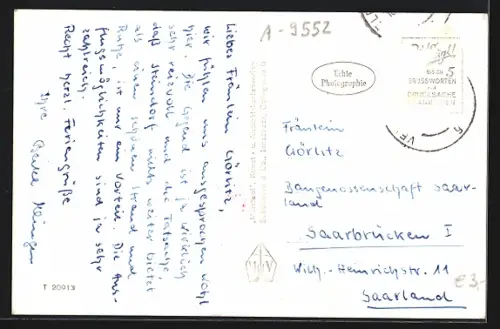 A-9552
Echte
Photographie
BIS ZU 5
GRUSSWORTEN
DRUCKSACHE
Liebes Fräulein Görlitz,
wir fühlen uns ausgesprochen wohl
hier. Die Gegend ist ja wirklich
sehr reizvoll und die Tatsache,
daß Steindorf nichts weiter bietet
als einen schönen Strand und
Ruhe, ist nur ein Vorteil. Die Aus-
flugsmöglichkeiten sind ja sehr
zahlreich.
Recht herzl. Feriengrüße
Ihre
Fräulein
Görlitz
Baugenossenschaft Saar-
land
Saarbrücken I
Wilh.-Heinrichstr. 11
Saarland
€ 3,-
T 20013